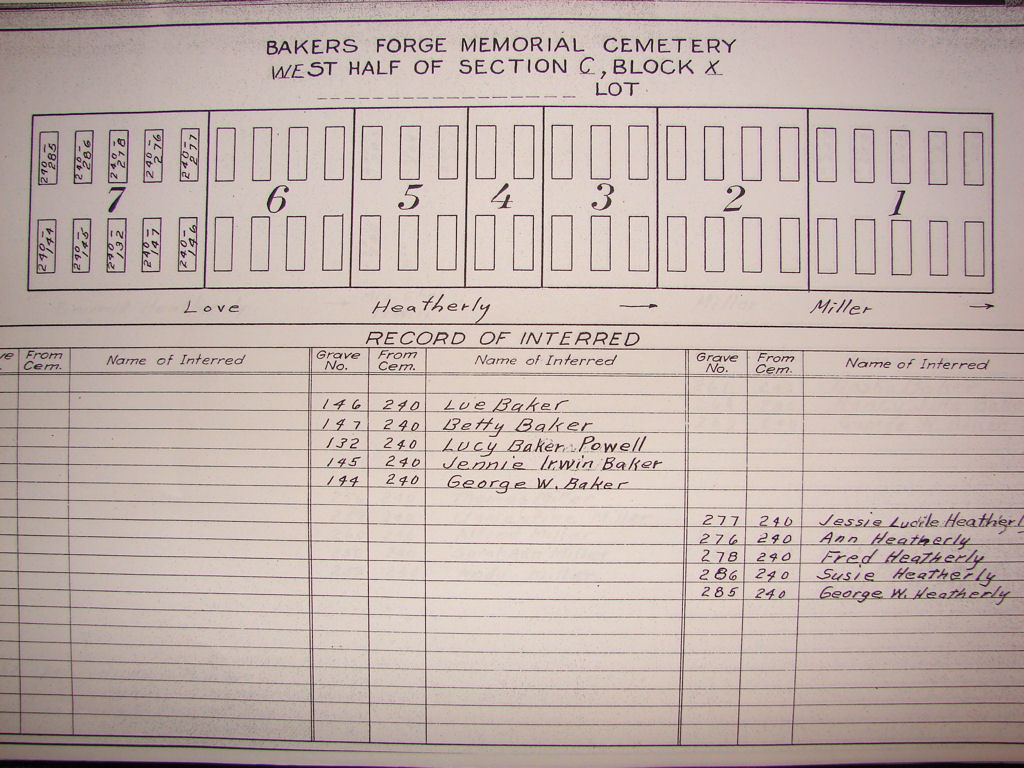 BAKERS FORGE MEMORIAL CEMETERY
WEST HALF OF SECTION C, BLOCK X
LOT
240-285 240-286 240-278 240-276 240-277
7 6 5 4 3 2 1
240-144 240-145 240-132 240-147 240-146
Love Heatherly → Miller →
RECORD OF INTERRED
From Cem. Name of Interred Grave No. From Cem. Name of Interred Grave No. From Cem. Name of Interred
146 240 Lue Baker
147 240 Betty Baker
132 240 Lucy Baker Powell
145 240 Jennie Irwin Baker
144 240 George W. Baker
277 240 Jessie Lucile Heatherly
276 240 Ann Heatherly
278 240 Fred Heatherly
286 240 Susie Heatherly
285 240 George W. Heatherly